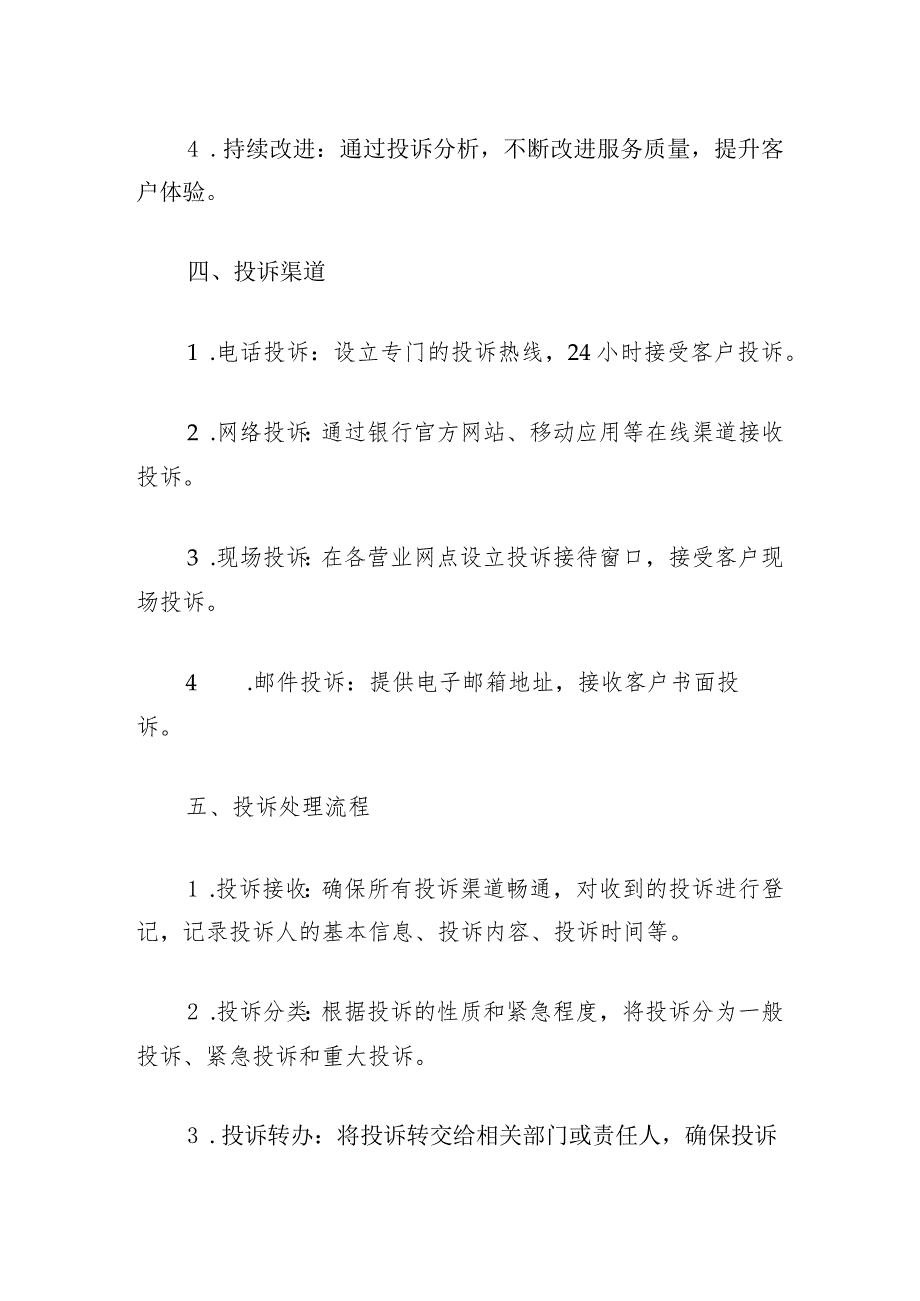 4 .持续改进：通过投诉分析，不断改进服务质量，提升客
户体验。
四、投诉渠道
1 .电话投诉：设立专门的投诉热线，24小时接受客户投诉。
2 .网络投诉：通过银行官方网站、移动应用等在线渠道接收
投诉。
3 .现场投诉：在各营业网点设立投诉接待窗口，接受客户现
场投诉。
4 .邮件投诉：提供电子邮箱地址，接收客户书面投
诉。
五、投诉处理流程
1 .投诉接收：确保所有投诉渠道畅通，对收到的投诉进行登
记，记录投诉人的基本信息、投诉内容、投诉时间等。
2 .投诉分类：根据投诉的性质和紧急程度，将投诉分为一般
投诉、紧急投诉和重大投诉。
3 .投诉转办：将投诉转交给相关部门或责任人，确保投诉